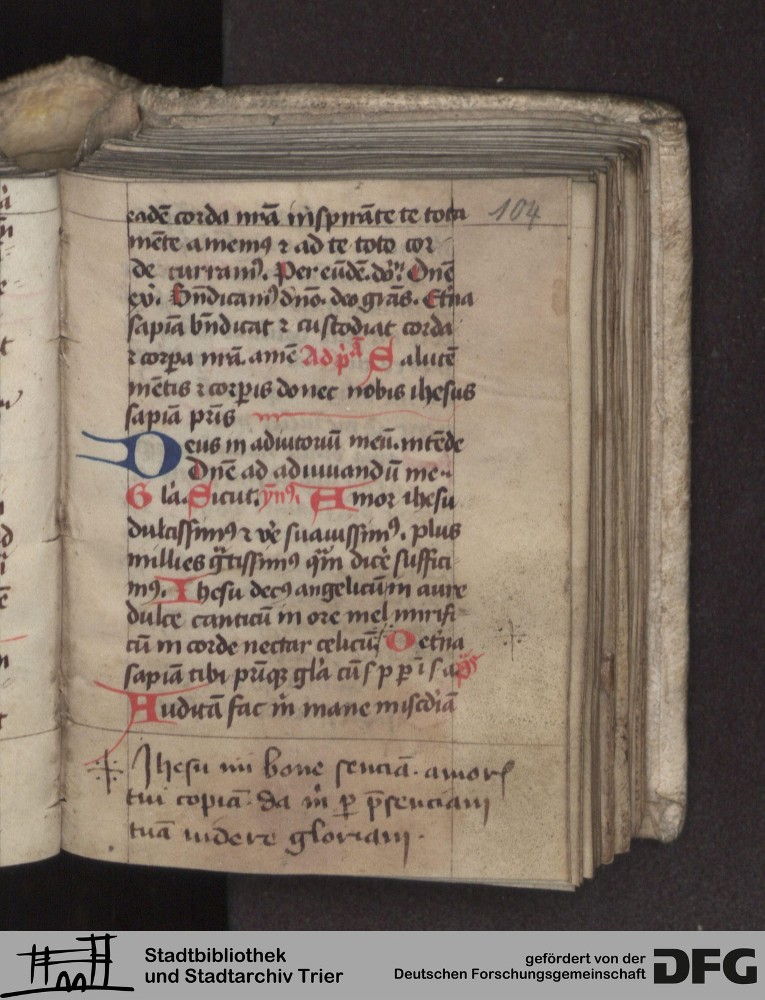 104
eadē corda nr̄a inspirāte te tota
mēte amemꝯ ⁊ ad te toto cor
de curramꝯ. Per eūdē. dō. Dn̄e
ex̄. Bn̄dicamꝯ dn̄o. deo grās. Et̄na
sapiā bn̄dicat ⁊ custodiat corda
⁊ corꝑa nr̄a. amē Ad p̄ᵃ Salutē
mētis ⁊ corꝑis donet nobis ihesus
sapiā pr̄is
Deus in adiutoriū meū. intēde
Dn̄e ad adiuuandū me
Glā. Sicut. ỹnꝯ. Amor ihesu
dulcissimꝯ ⁊ vē suauissimꝯ. plus
millies gͣtissimꝯ qͣm dicē suffici
mꝯ. Ihesu decꝯ angelicū in aure
dulce canticū in ore mel mirifi
cū in corde nectar celicū O et̄na
sapiā tibi pr̄iqꝫ glā cū s p ꝑ ī s a
Auditā fac m̄ mane miscdiā
Jhesu mi bone senciā. amorꝭ
tui copiā. da m̄ ꝑ p̄senciam
tuā videre gloriam.
Stadtbibliothek
und Stadtarchiv Trier
gefördert von der
Deutschen Forschungsgemeinschaft
DFG